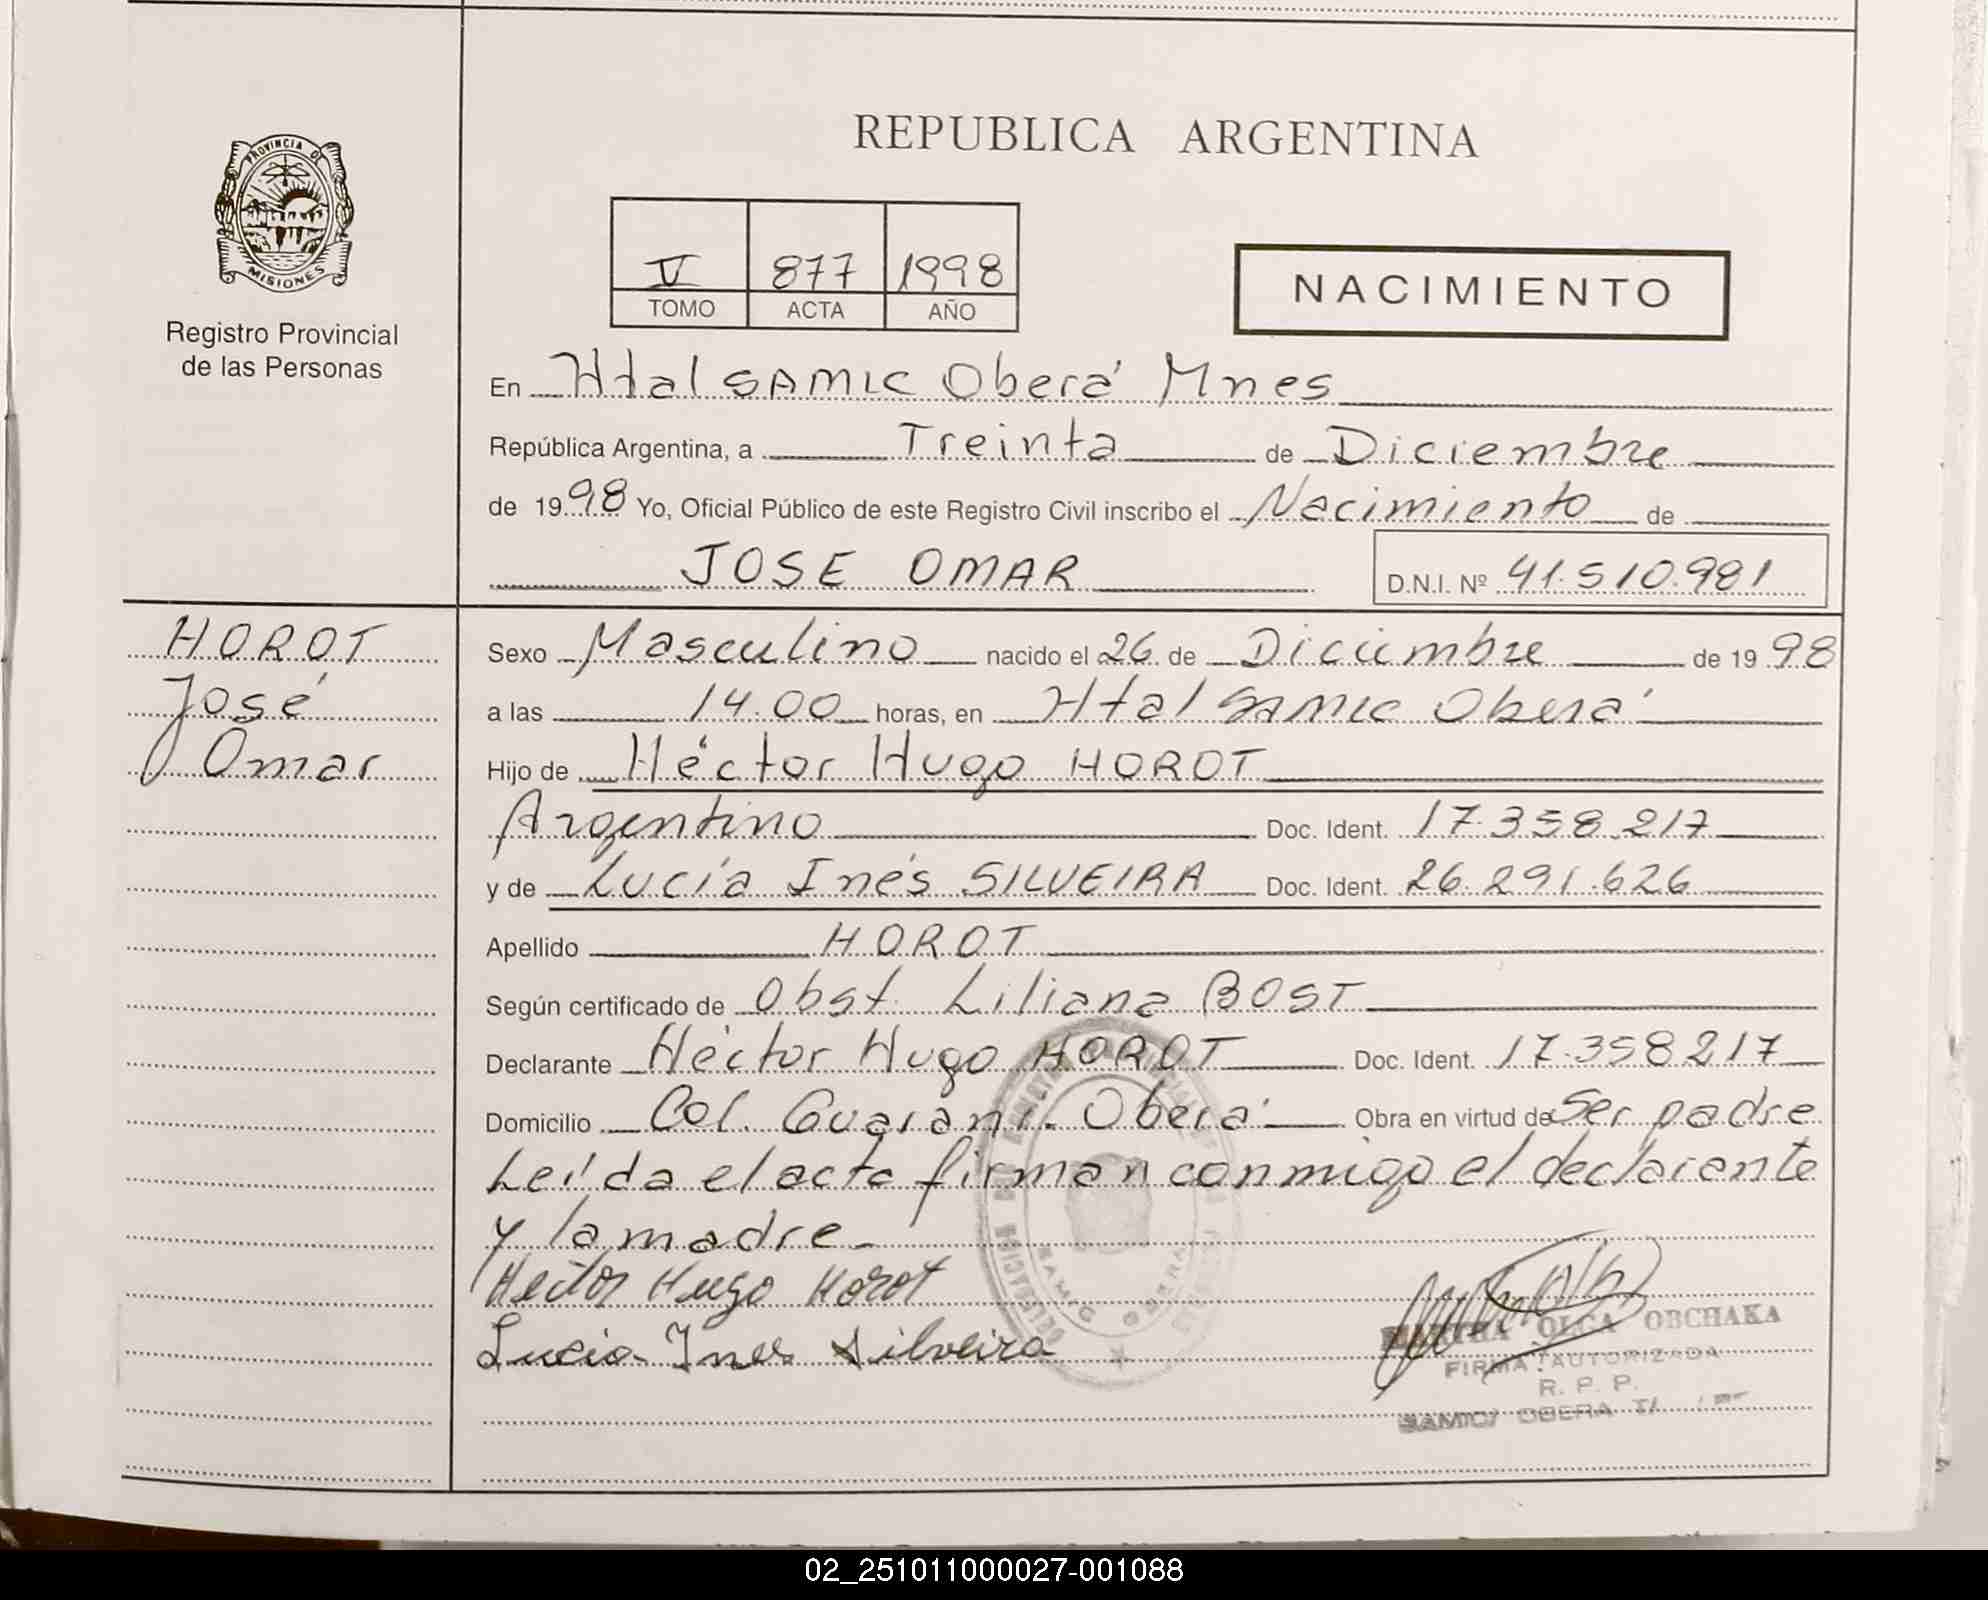 REPUBLICA ARGENTINA
PROVINCIA DE
MISIONES
Registro Provincial
de las Personas
V 877 1998
TOMO ACTA AÑO
NACIMIENTO
En Htal SAMIC Oberá Mnes
República Argentina, a Treinta de Diciembre
de 1998 Yo, Oficial Público de este Registro Civil inscribo el Nacimiento de
JOSE OMAR D.N.I. Nº 41.510.981
HOROT
José
Omar
Sexo Masculino nacido el 26 de Diciembre de 1998
a las 14.00 horas, en Htal SAMIC Oberá
Hijo de Héctor Hugo HOROT
Argentino Doc. Ident. 17.358.217
y de Lucía Inés SILVEIRA Doc. Ident. 26.291.626
Apellido HOROT
Según certificado de Obst. Liliana BOST
Declarante Héctor Hugo HOROT Doc. Ident. 17.358217
Domicilio Col. Guaraní. Oberá Obra en virtud de Ser padre
Leída el acta firman conmigo el declarante
y la madre.
Hector Hugo Horot
Lucia Ines Silveira
SAMIC OBERA
MARTHA OLGA OBCHAKA
FIRMA AUTORIZADA
R. P. P.
SAMIC OBERA
02_251011000027-001088